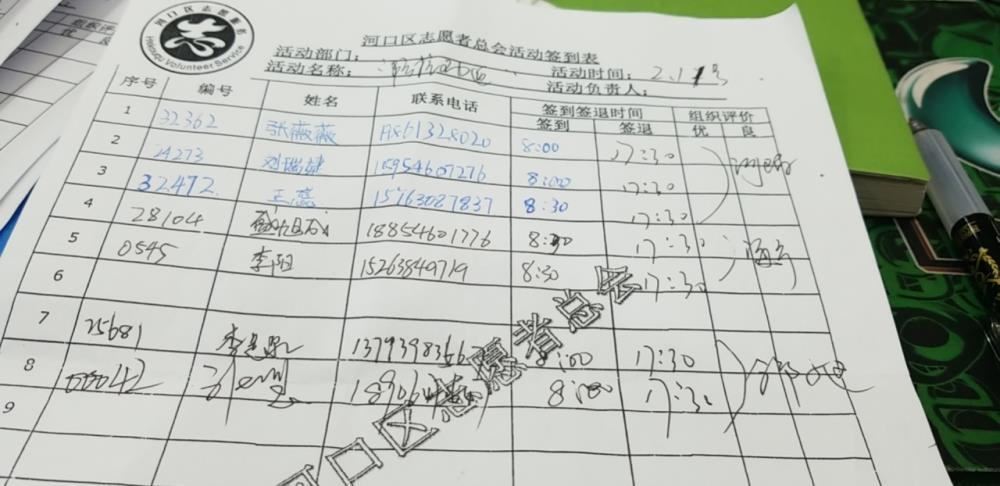 河口区志愿者总会活动签到表
活动部门：
活动名称： 活动时间：2.17号
活动负责人：
河口区志愿者
Hekouqu Volunteer Service
序号 编号 姓名 联系电话 签到签退时间 组织评价
签到 签退 优 良
1 32362 张薇薇 8:00 17:30
2 24273 刘瑞婕 15954607276 8:00 17:30
3 32472 王蕊 15763087837 8:30 17:30
4 28104 18854601776 8:30 17:30
5 0545 李阳 15263849719 8:30 17:30
6
7 25681 8:00 17:30
8 00042 8:00 17:30
9
河口区志愿者总会